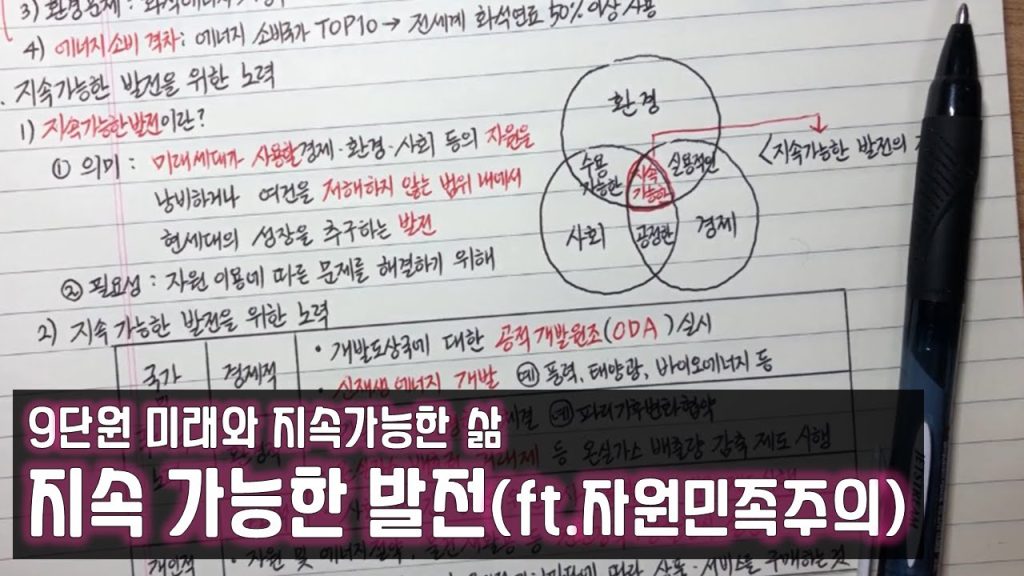 3) 환경문제 :
4) 에너지 소비 격차 : 에너지 소비국가 TOP10 → 전세계 화석연료 50% 이상 사용
지속가능한 발전을 위한 노력
1) 지속가능한발전이란?
① 의미 : 미래세대가 사용할 경제·환경·사회 등의 자원을
낭비하거나 여건을 저해하지 않는 범위 내에서
현세대의 성장을 추구하는 발전
② 필요성 : 자원 이용에 따른 문제를 해결하기 위해
환경
수용
가능한
지속
가능한
실용적인
사회
공정한
경제
<지속가능한 발전의
2) 지속 가능한 발전을 위한 노력
국가
경제적
• 개발도상국에 대한 공적개발원조(ODA) 실시
• 신재생에너지 개발 예 풍력, 태양광, 바이오에너지 등
예 파리기후변화협약
등 온실가스 배출량 감축 제도 시행
개인적
• 자원 및 에너지 절약,
상품·서비스를 구매하는 것
9단원 미래와 지속가능한 삶
지속 가능한 발전(ft.자원민족주의)